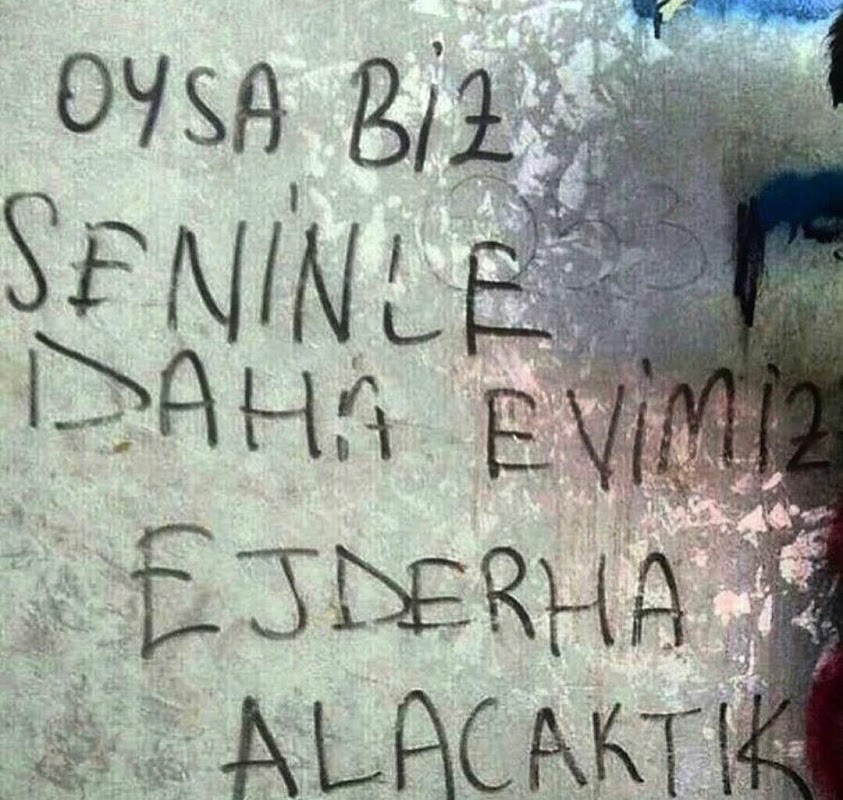 OYSA BİZ
SENİNLE
DAHA EVİMİZ
EJDERHA
ALACAKTIK